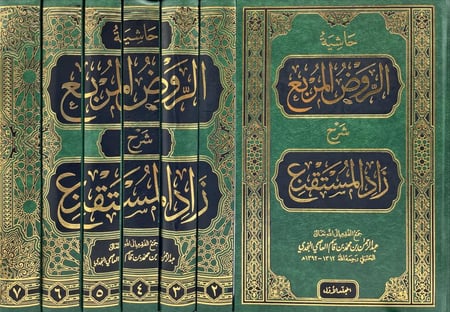 حاشية
الروض المربع
شرح
زاد المستقنع
جمع الفقير إلى الله تعالى
عبد الرحمن بن محمد بن قاسم العاصمي النجدي
الحنبلي رحمه الله ١٣١٢ - ١٣٩٢ هـ
المجلد الأول
حاشية
الروض المربع
شرح
زاد المستقنع
جمع الفقير إلى الله تعالى
عبد الرحمن بن محمد بن قاسم العاصمي النجدي
٢ ٣ ٤ ٥ ٦ ٧